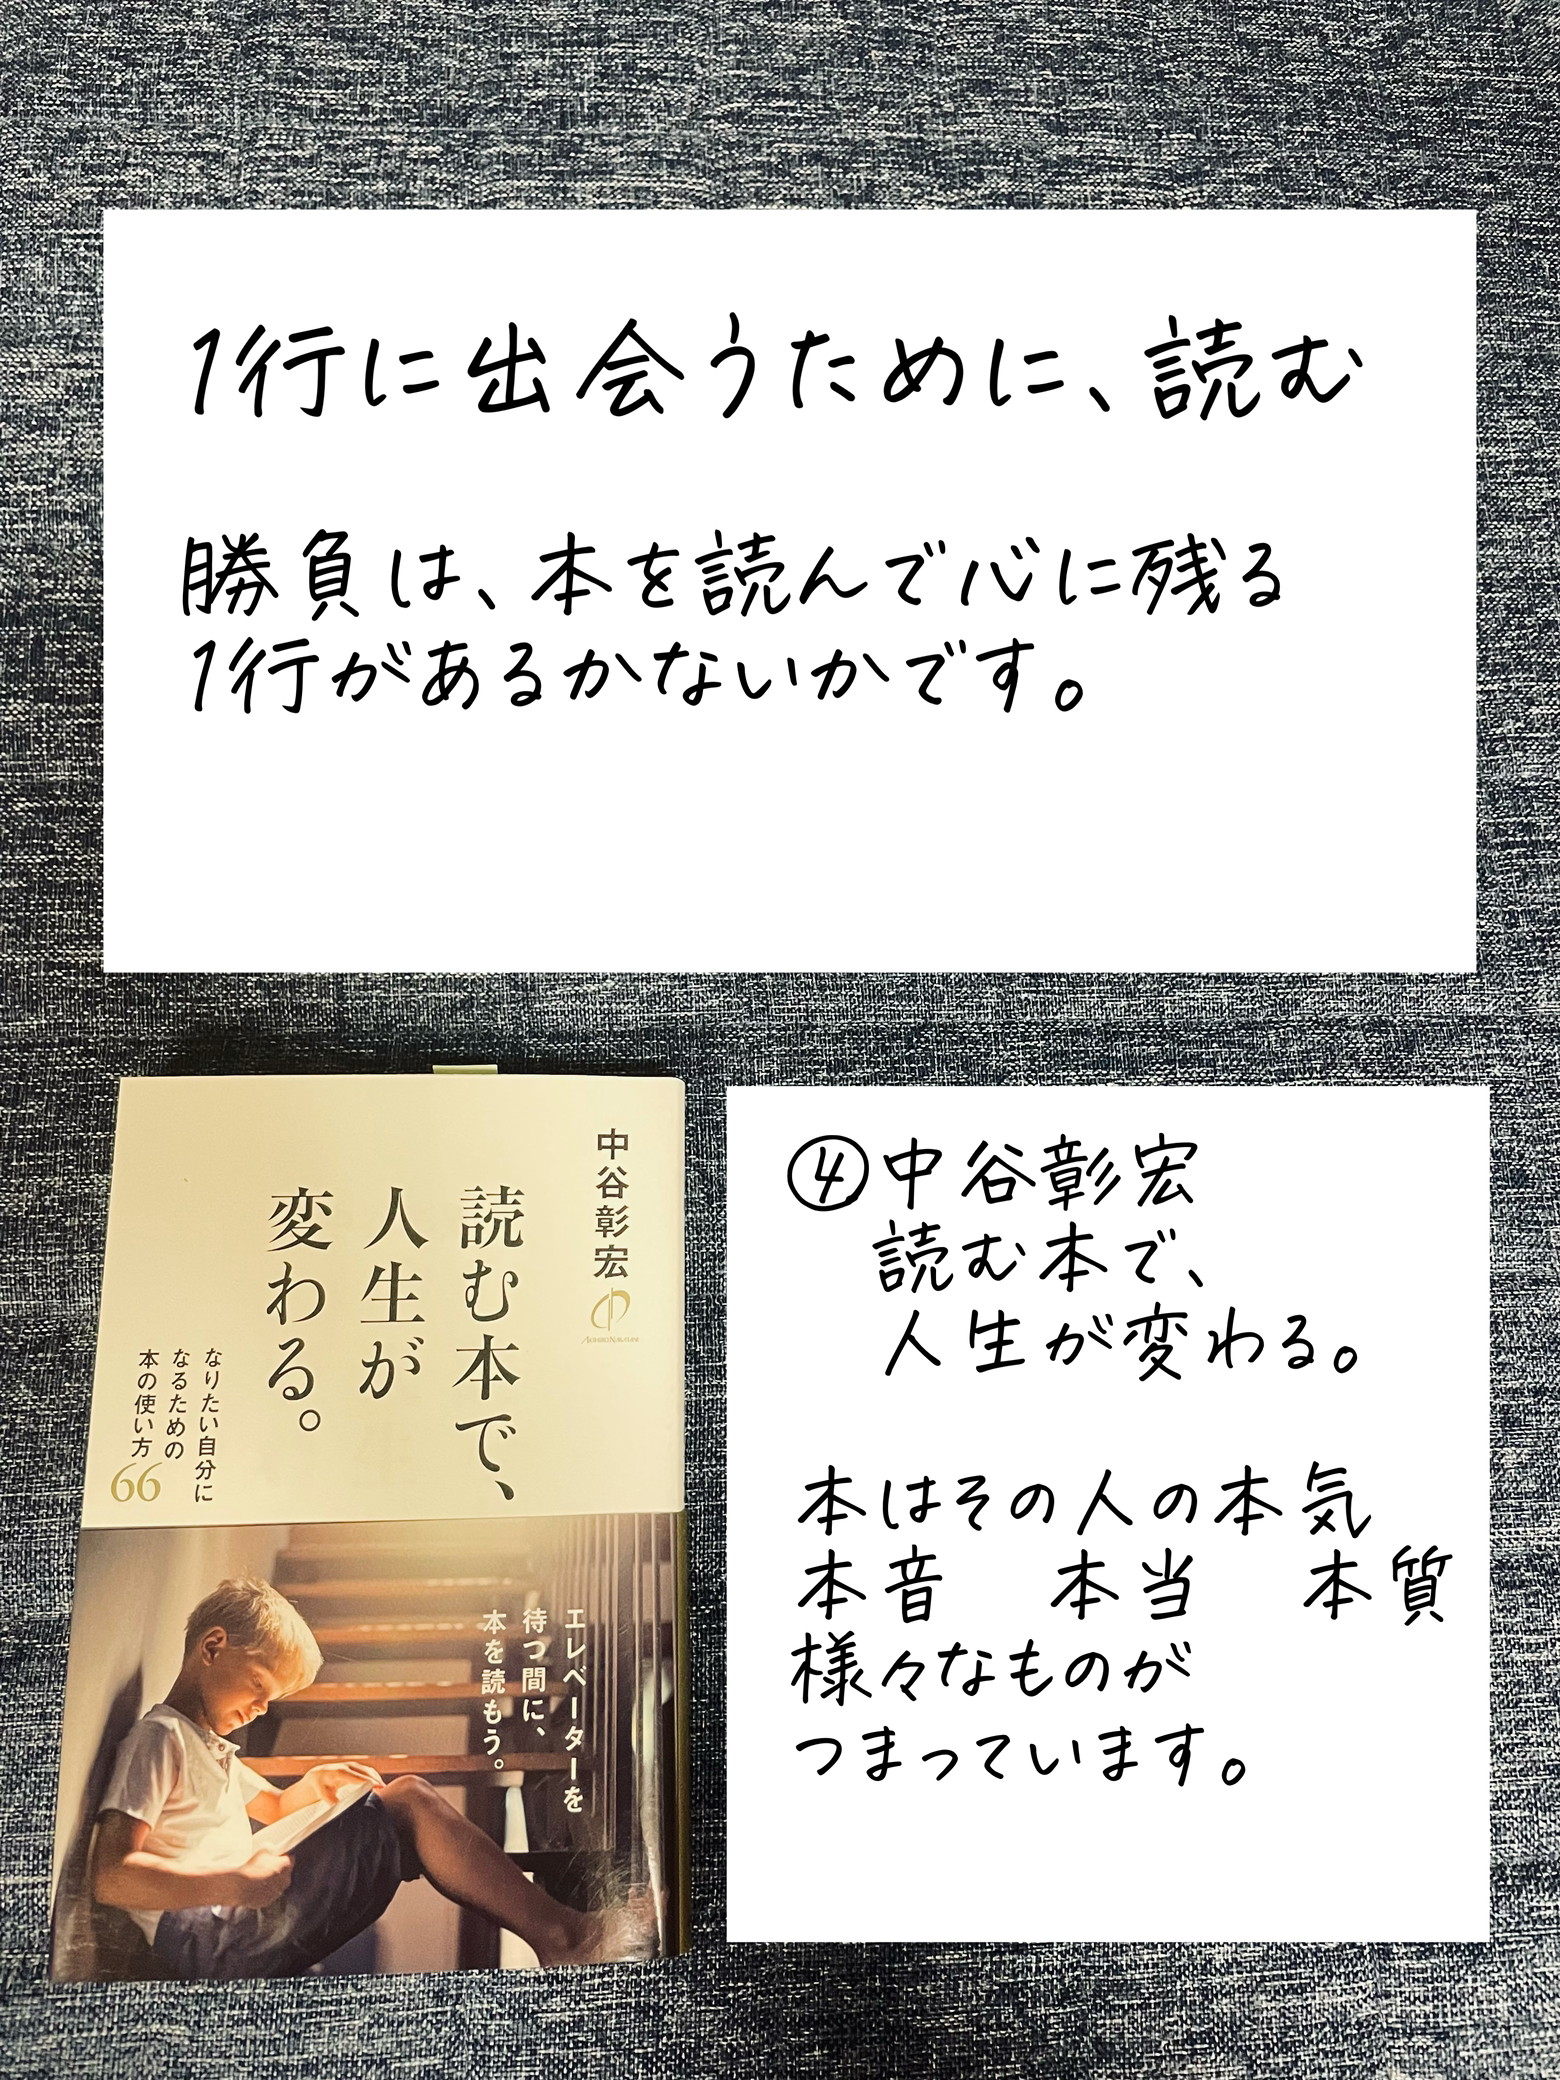 1行に出会うために、読む
勝負は、本を読んで心に残る
1行があるかないかです。
中谷彰宏
読む本で、
人生が
変わる。
なりたい自分に
なるための
本の使い方
66
エレベーターを
待つ間に、
本を読もう。
④中谷彰宏
読む本で、
人生が変わる。
本はその人の本気
本音　本当　本質
様々なものが
つまっています。